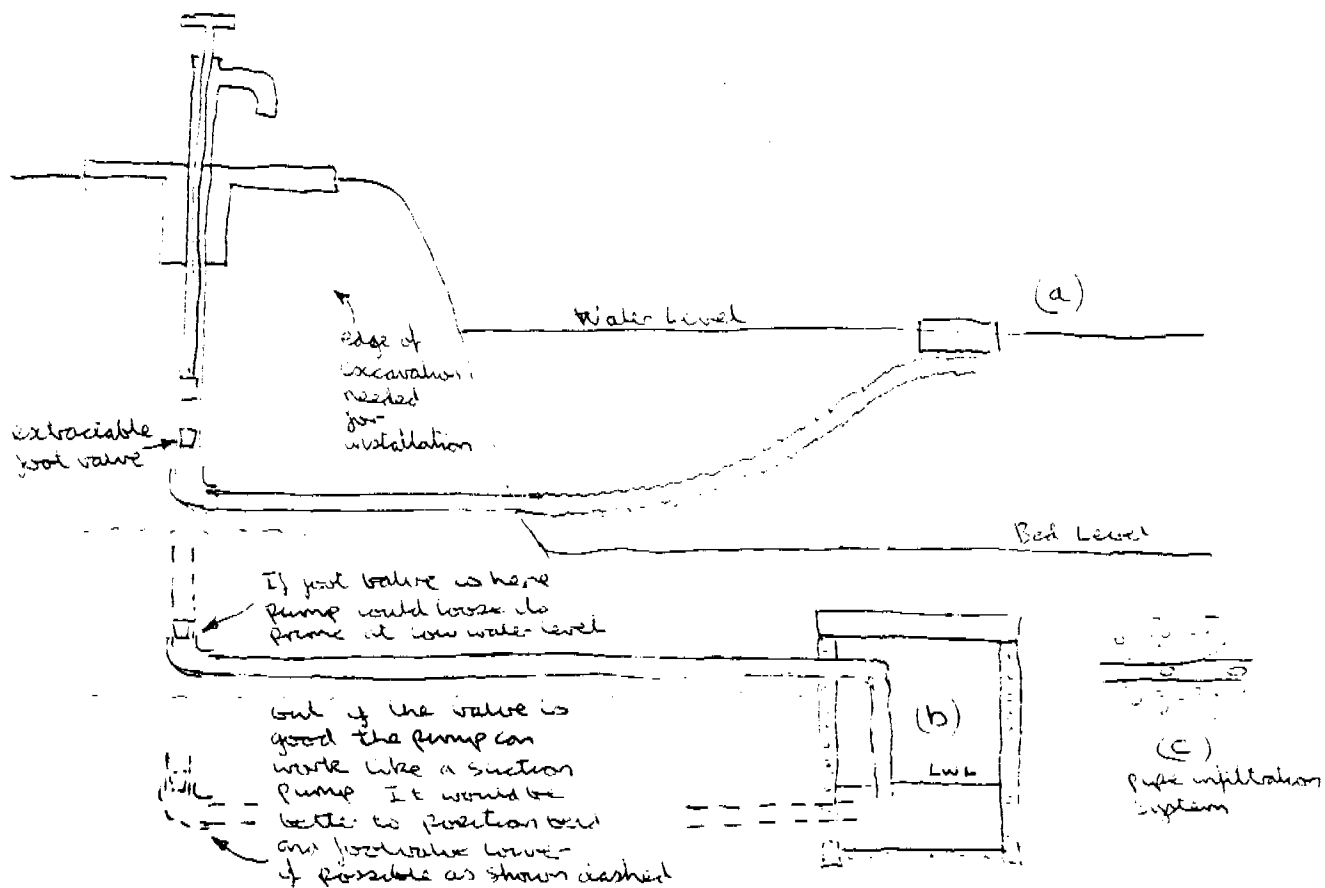 (a)
Water Level
edge of
excavation
needed
for
installation
extractable
foot valve
Bed Level
If foot valve is here
pump would loose its
prime at low water level
but if the valve is
good the pump can
work like a suction
pump It would be
better to position bend
and footvalve lower
if possible as shown dashed
(b)
LWL
(c)
pipe infiltration
system